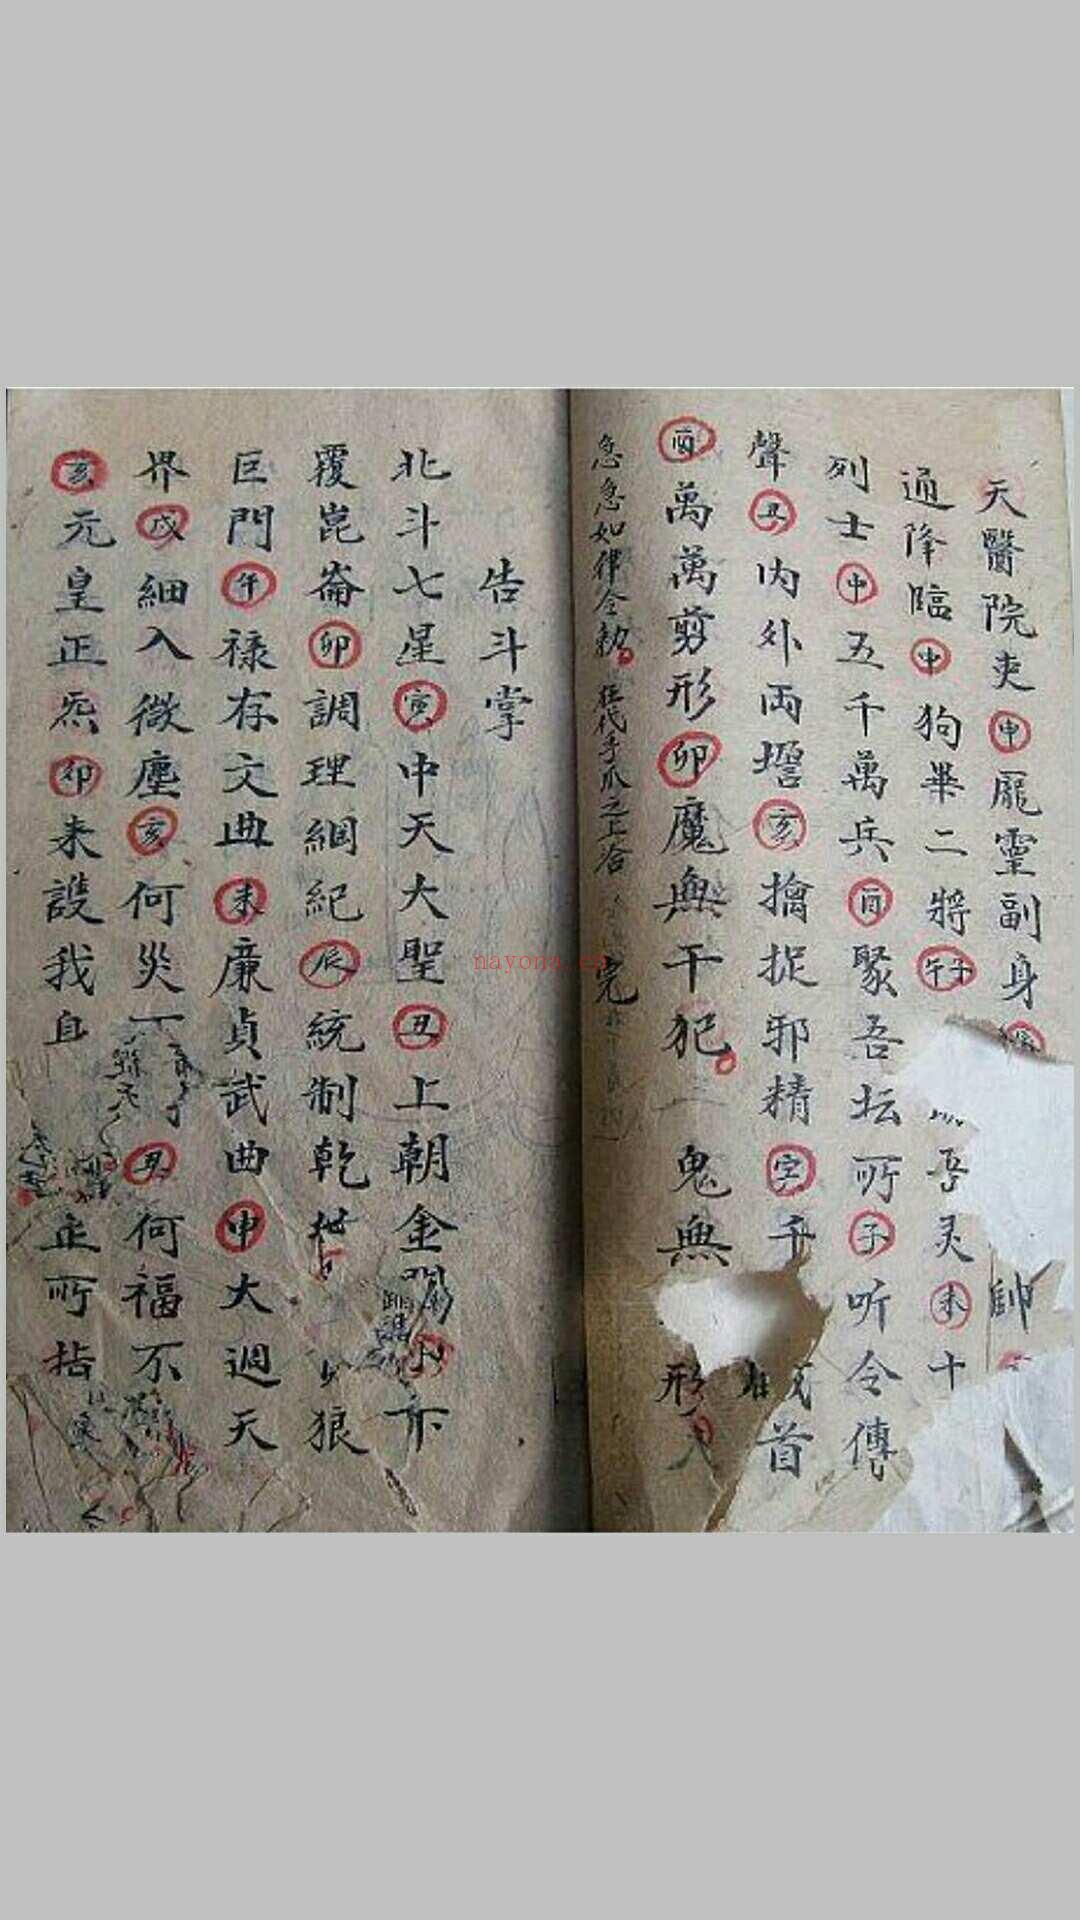 天醫院吏申龎靈副身
帥
通降臨申狗畢二將午子
吾灵未十
列士申五千萬兵酉聚吾坛所子听令傳
聲丑内外両壋亥擒捉邪精字千
首
酉萬萬剪形卯魔無干犯一鬼無
形入
急急如律令勅
在代手爪之上冾
完
告斗掌
北斗七星寅中天大聖丑上朝金闕
覆崑崙卯調理綱紀辰統制乾
狼
巨門午禄存文曲未廉貞武曲申大週天
界戌細入微塵亥何災
丑何福不
亥元皇正炁卯来護我
正所拈
nayona.cn